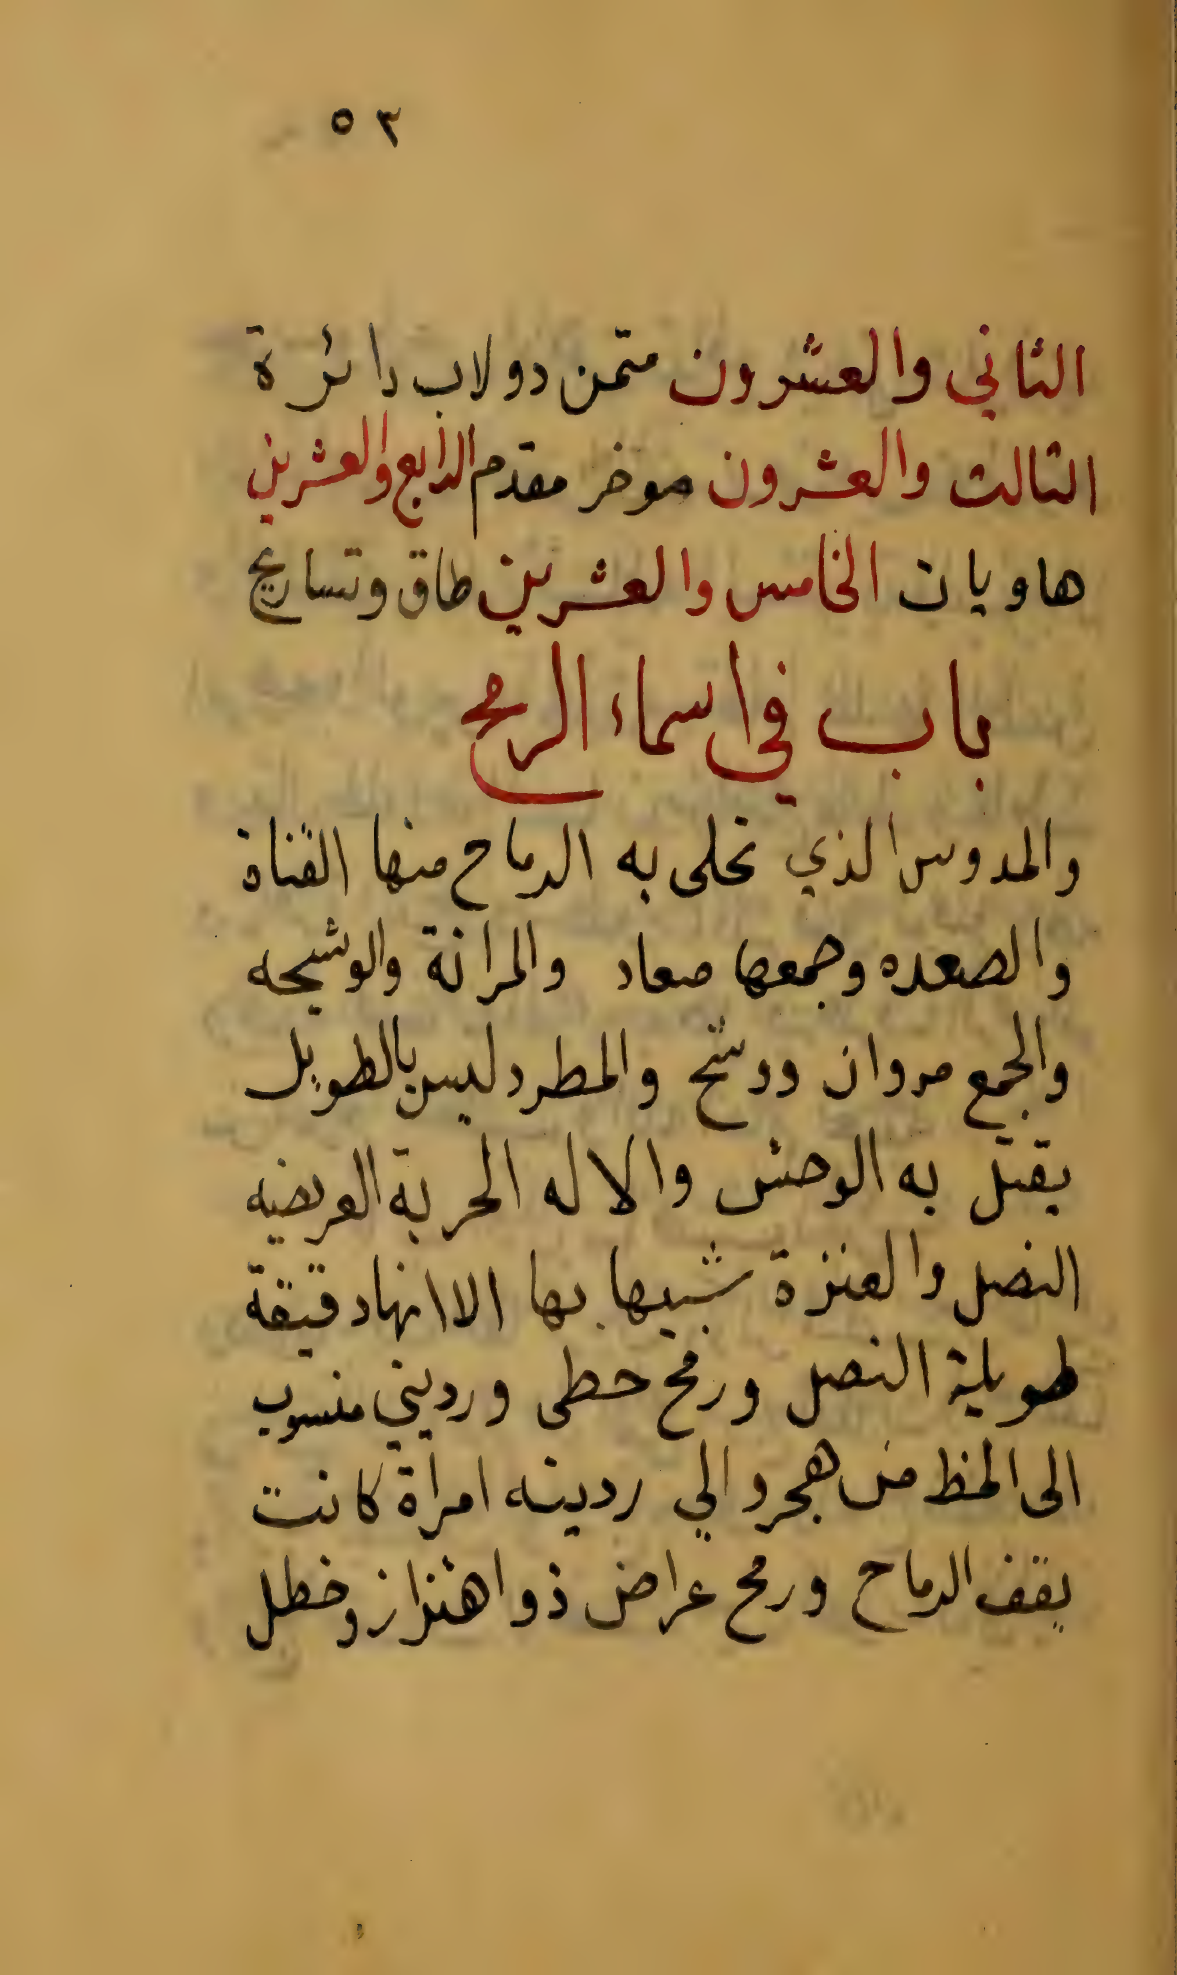 ٥٣
الثاني والعشرون متمن دولاب دائرة
الثالث والعشرون موخر مقدم الرابع والعشرين
هاويات الخامس والعشرين طاق وتساريح
باب في اسماء الرمح
والمدوس الذي تحلى به الرماح منها القناة
والصعده وجمعها صعاد والمرانة والوشيحه
والجمع مروان ووشح والمطرد ليس بالطويل
يقتل به الوحش والاله الحربة العريضه
النصل والعنزة شبيها بها الا انها دقيقة
طويلة النصل ورمح خطى ورديني منسوب
الى الخط من هجر والي ردينه امرأة كانت
يقف الرماح ورمح عراض ذو اهتزاز وخطل